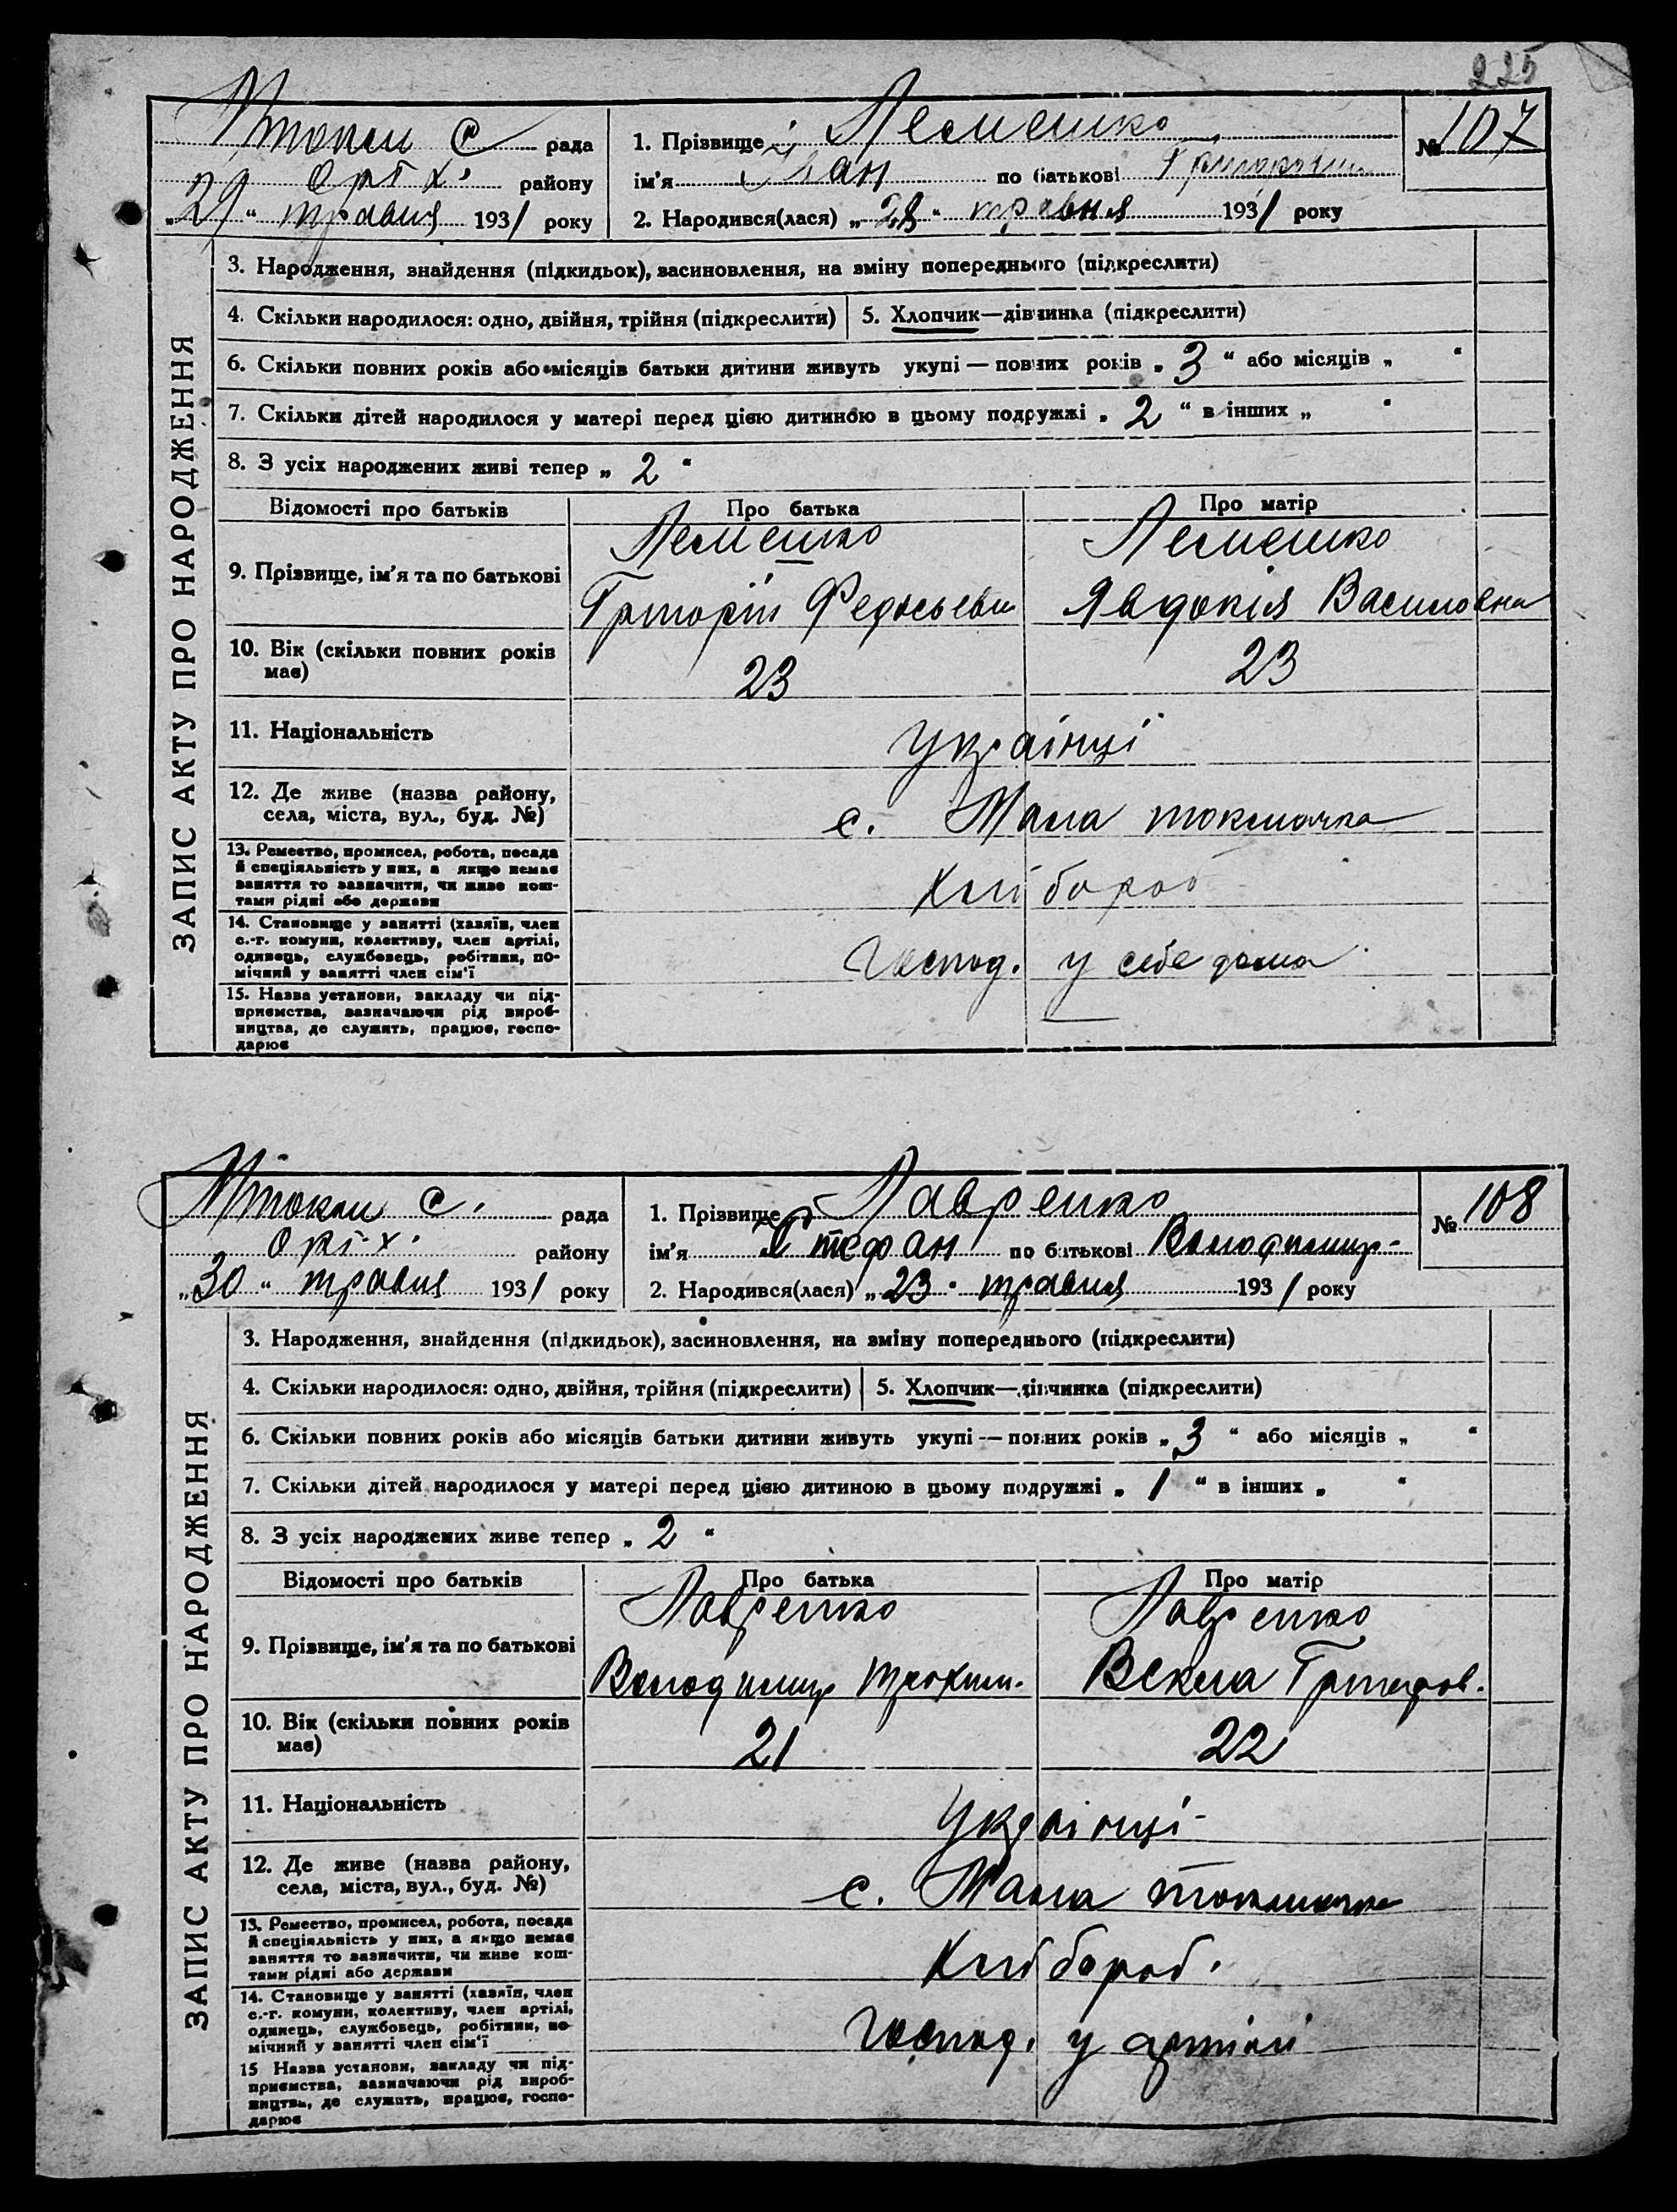 225
Мтокм с. рада
Оріх. району
„29“ травня 1931 року
1. Прізвище Лемешко
ім'я Іван по батькові
2. Народився(лася) „28“ травня 1931 року
№ 107
ЗАПИС АКТУ ПРО НАРОДЖЕННЯ
3. Народження, знайдення (підкидьок), засиновлення, на зміну попереднього (підкреслити)
4. Скільки народилося: одно, двійня, трійня (підкреслити) 5. Хлопчик—дівчинка (підкреслити)
6. Скільки повних років або місяців батьки дитини живуть укупі — повних років „3“ або місяців „ “
7. Скільки дітей народилося у матері перед цією дитиною в цьому подружжі „2“ в інших „ “
8. З усіх народжених живі тепер „2“
Відомості про батьків Про батька Про матір
9. Прізвище, ім'я та по батькові
Лемешко Лемешко
Григорій Федосьеви Явдокія Василовна
10. Вік (скільки повних років має)
23 23
11. Національність
Українці
12. Де живе (назва району,
села, міста, вул., буд. №)
с. Мала токмачка
13. Ремество, промисел, робота, посада
й спеціяльність у них, а якщо немає
заняття то зазначити, чи живе кош-
тами рідні або держави
Хлібороб
14. Становище у занятті (хазяїн, член
с.-г. комуни, колективу, член артілі,
одинець, службовець, робітник, по-
мічний у занятті член сім'ї
Господ. у себе дома
15. Назва установи, закладу чи під-
приємства, зазначаючи рід вироб-
ництва, де служить, працює, госпо-
дарює
Мтокм с. рада
Оріх. району
„30“ травня 1931 року
1. Прізвище Лавренко
ім'я Стефан по батькові Володимир-
2. Народився(лася) „23“ травня 1931 року
№ 108
ЗАПИС АКТУ ПРО НАРОДЖЕННЯ
3. Народження, знайдення (підкидьок), засиновлення, на зміну попереднього (підкреслити)
4. Скільки народилося: одно, двійня, трійня (підкреслити) 5. Хлопчик—дівчинка (підкреслити)
6. Скільки повних років або місяців батьки дитини живуть укупі — повних років „3“ або місяців „ “
7. Скільки дітей народилося у матері перед цією дитиною в цьому подружжі „1“ в інших „ “
8. З усіх народжених живе тепер „2“
Відомості про батьків Про батька Про матір
9. Прізвище, ім'я та по батькові
Лавренко Лавренко
Володимир Трохим. Векла Григоров.
10. Вік (скільки повних років має)
21 22
11. Національність
Українці
12. Де живе (назва району,
села, міста, вул., буд. №)
с. Мала токмачка
13. Ремество, промисел, робота, посада
й спеціяльність у них, а якщо немає
заняття то зазначити, чи живе кош-
тами рідні або держави
Хлібороб.
14. Становище у занятті (хазяїн, член
с.-г. комуни, колективу, член артілі,
одинець, службовець, робітник, по-
мічний у занятті член сім'ї
Господ. у артілі
15 Назва установи, закладу чи під-
приємства, зазначаючи рід вироб-
ництва, де служить, працює, госпо-
дарює